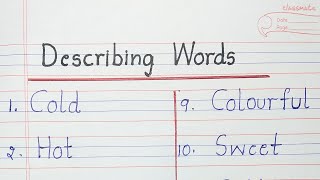 classmate
Date
Page
Describing Words
1. Cold
2. Hot
9. Colourful
10. Sweet